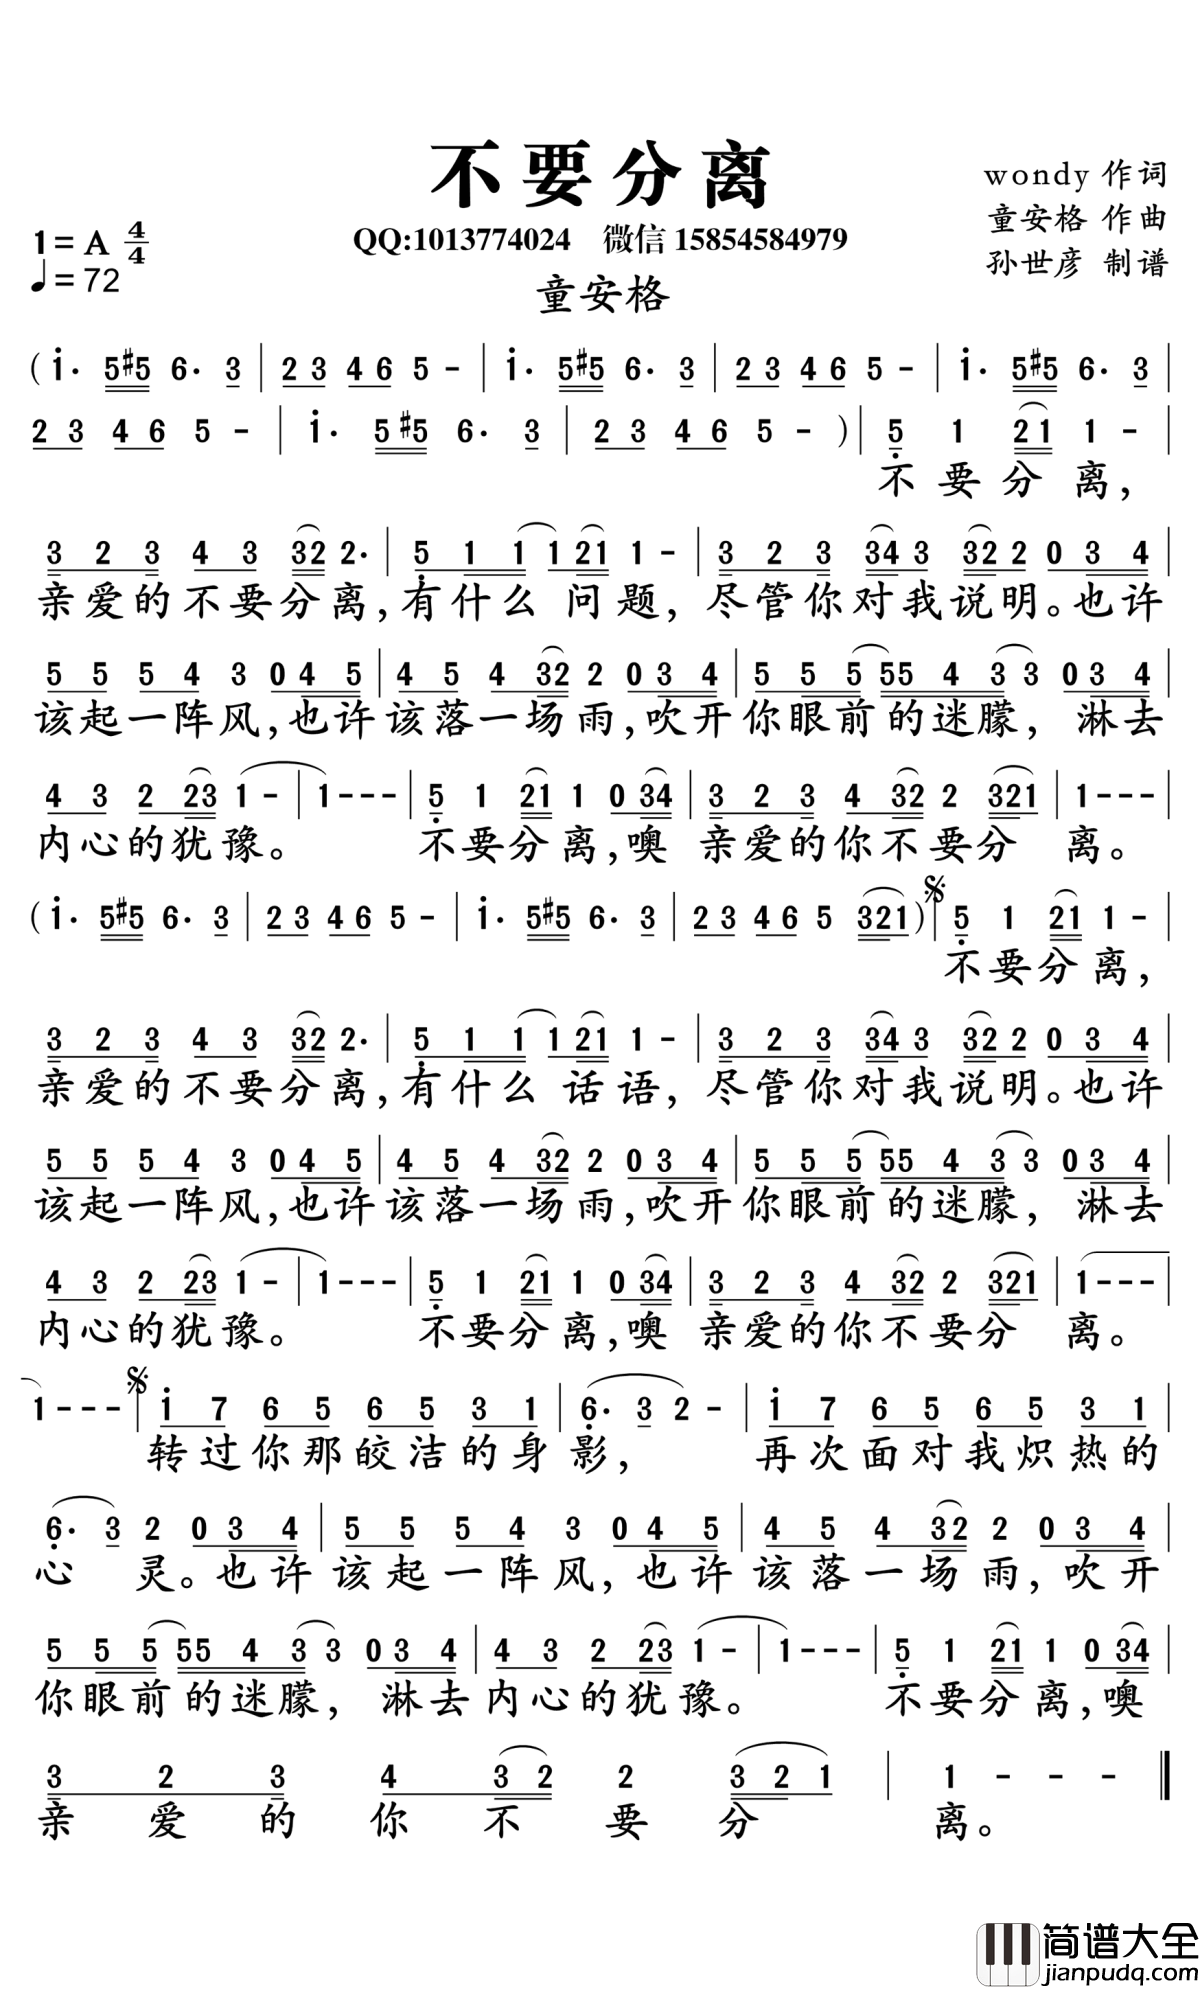 不要分离
wondy 作词
童安格 作曲
孙世彦 制谱
1=A 4/4
♩=72
QQ:1013774024 微信 15854584979
童安格
(i· 5#5 6· 3 | 2 3 4 6 5 - | i· 5#5 6· 3 | 2 3 4 6 5 - | i· 5#5 6· 3 |
2 3 4 6 5 - | i· 5#5 6· 3 | 2 3 4 6 5 - ) | 5 1 21 1 - |
不要分离，
3 2 3 4 3 32 2· | 5 1 1 1 21 1 - | 3 2 3 34 3 32 2 0 3 4 |
亲爱的不要分离，有什么 问题，尽管你对我说明。也许
5 5 5 4 3 0 4 5 | 4 5 4 32 2 0 3 4 | 5 5 5 55 4 3 3 0 3 4 |
该起一阵风，也许该落一场雨，吹开你眼前的迷朦，淋去
4 3 2 23 1 - | 1 - - - | 5 1 21 1 0 34 | 3 2 3 4 32 2 321 | 1 - - - |
内心的犹豫。 不要分离，噢 亲爱的你不要分 离。
(i· 5#5 6· 3 | 2 3 4 6 5 - | i· 5#5 6· 3 | 2 3 4 6 5 321) | 5 1 21 1 - |
不要分离，
3 2 3 4 3 32 2· | 5 1 1 1 21 1 - | 3 2 3 34 3 32 2 0 3 4 |
亲爱的不要分离，有什么 话语，尽管你对我说明。也许
5 5 5 4 3 0 4 5 | 4 5 4 32 2 0 3 4 | 5 5 5 55 4 3 3 0 3 4 |
该起一阵风，也许该落一场雨，吹开你眼前的迷朦，淋去
4 3 2 23 1 - | 1 - - - | 5 1 21 1 0 34 | 3 2 3 4 32 2 321 | 1 - - - |
内心的犹豫。 不要分离，噢 亲爱的你不要分 离。
1 - - - | i 7 6 5 6 5 3 1 | 6· 3 2 - | i 7 6 5 6 5 3 1 |
转过你那皎洁的身影， 再次面对我炽热的
6· 3 2 0 3 4 | 5 5 5 4 3 0 4 5 | 4 5 4 32 2 0 3 4 |
心 灵。也许 该起一阵风，也许该落一场雨，吹开
5 5 5 55 4 3 3 0 3 4 | 4 3 2 23 1 - | 1 - - - | 5 1 21 1 0 34 |
你眼前的迷朦，淋去内心的犹豫。 不要分离，噢
3 2 3 4 3 2 2 3 2 1 | 1 - - - ‖
亲爱的你不要分 离。
简谱大全
jianpudq.com